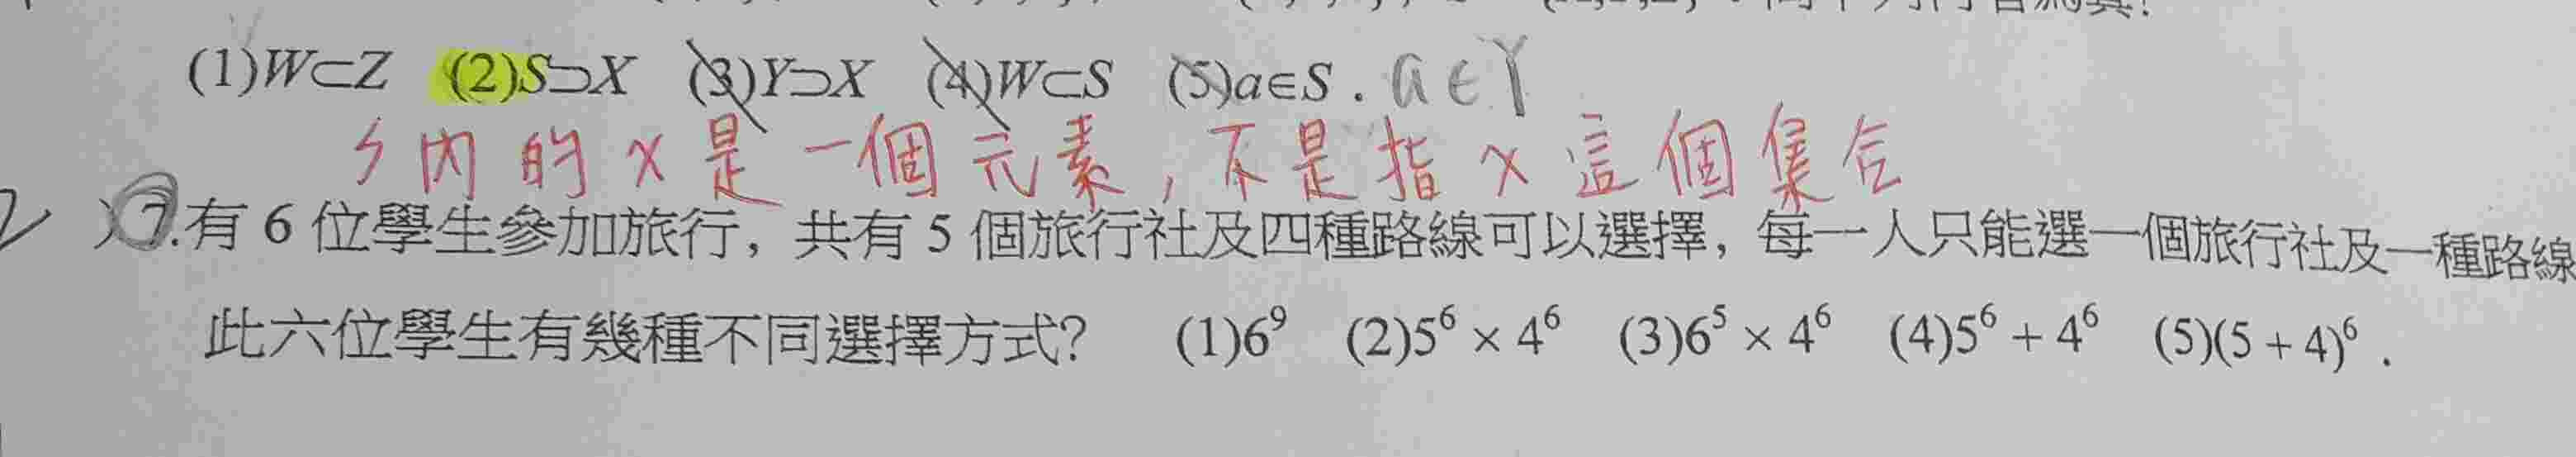 (1)W⊂Z (2)S⊃X (3)Y⊃X (4)W⊂S (5)a∈S . a∈Y
內的 X 是一個元素, 不是指 X 這個集合
2 ) 7.有 6 位學生參加旅行, 共有 5 個旅行社及四種路線可以選擇, 每一人只能選一個旅行社及一種路線
此六位學生有幾種不同選擇方式? (1)6⁹ (2)5⁶ × 4⁶ (3)6⁵ × 4⁶ (4)5⁶ + 4⁶ (5)(5 + 4)⁶ .